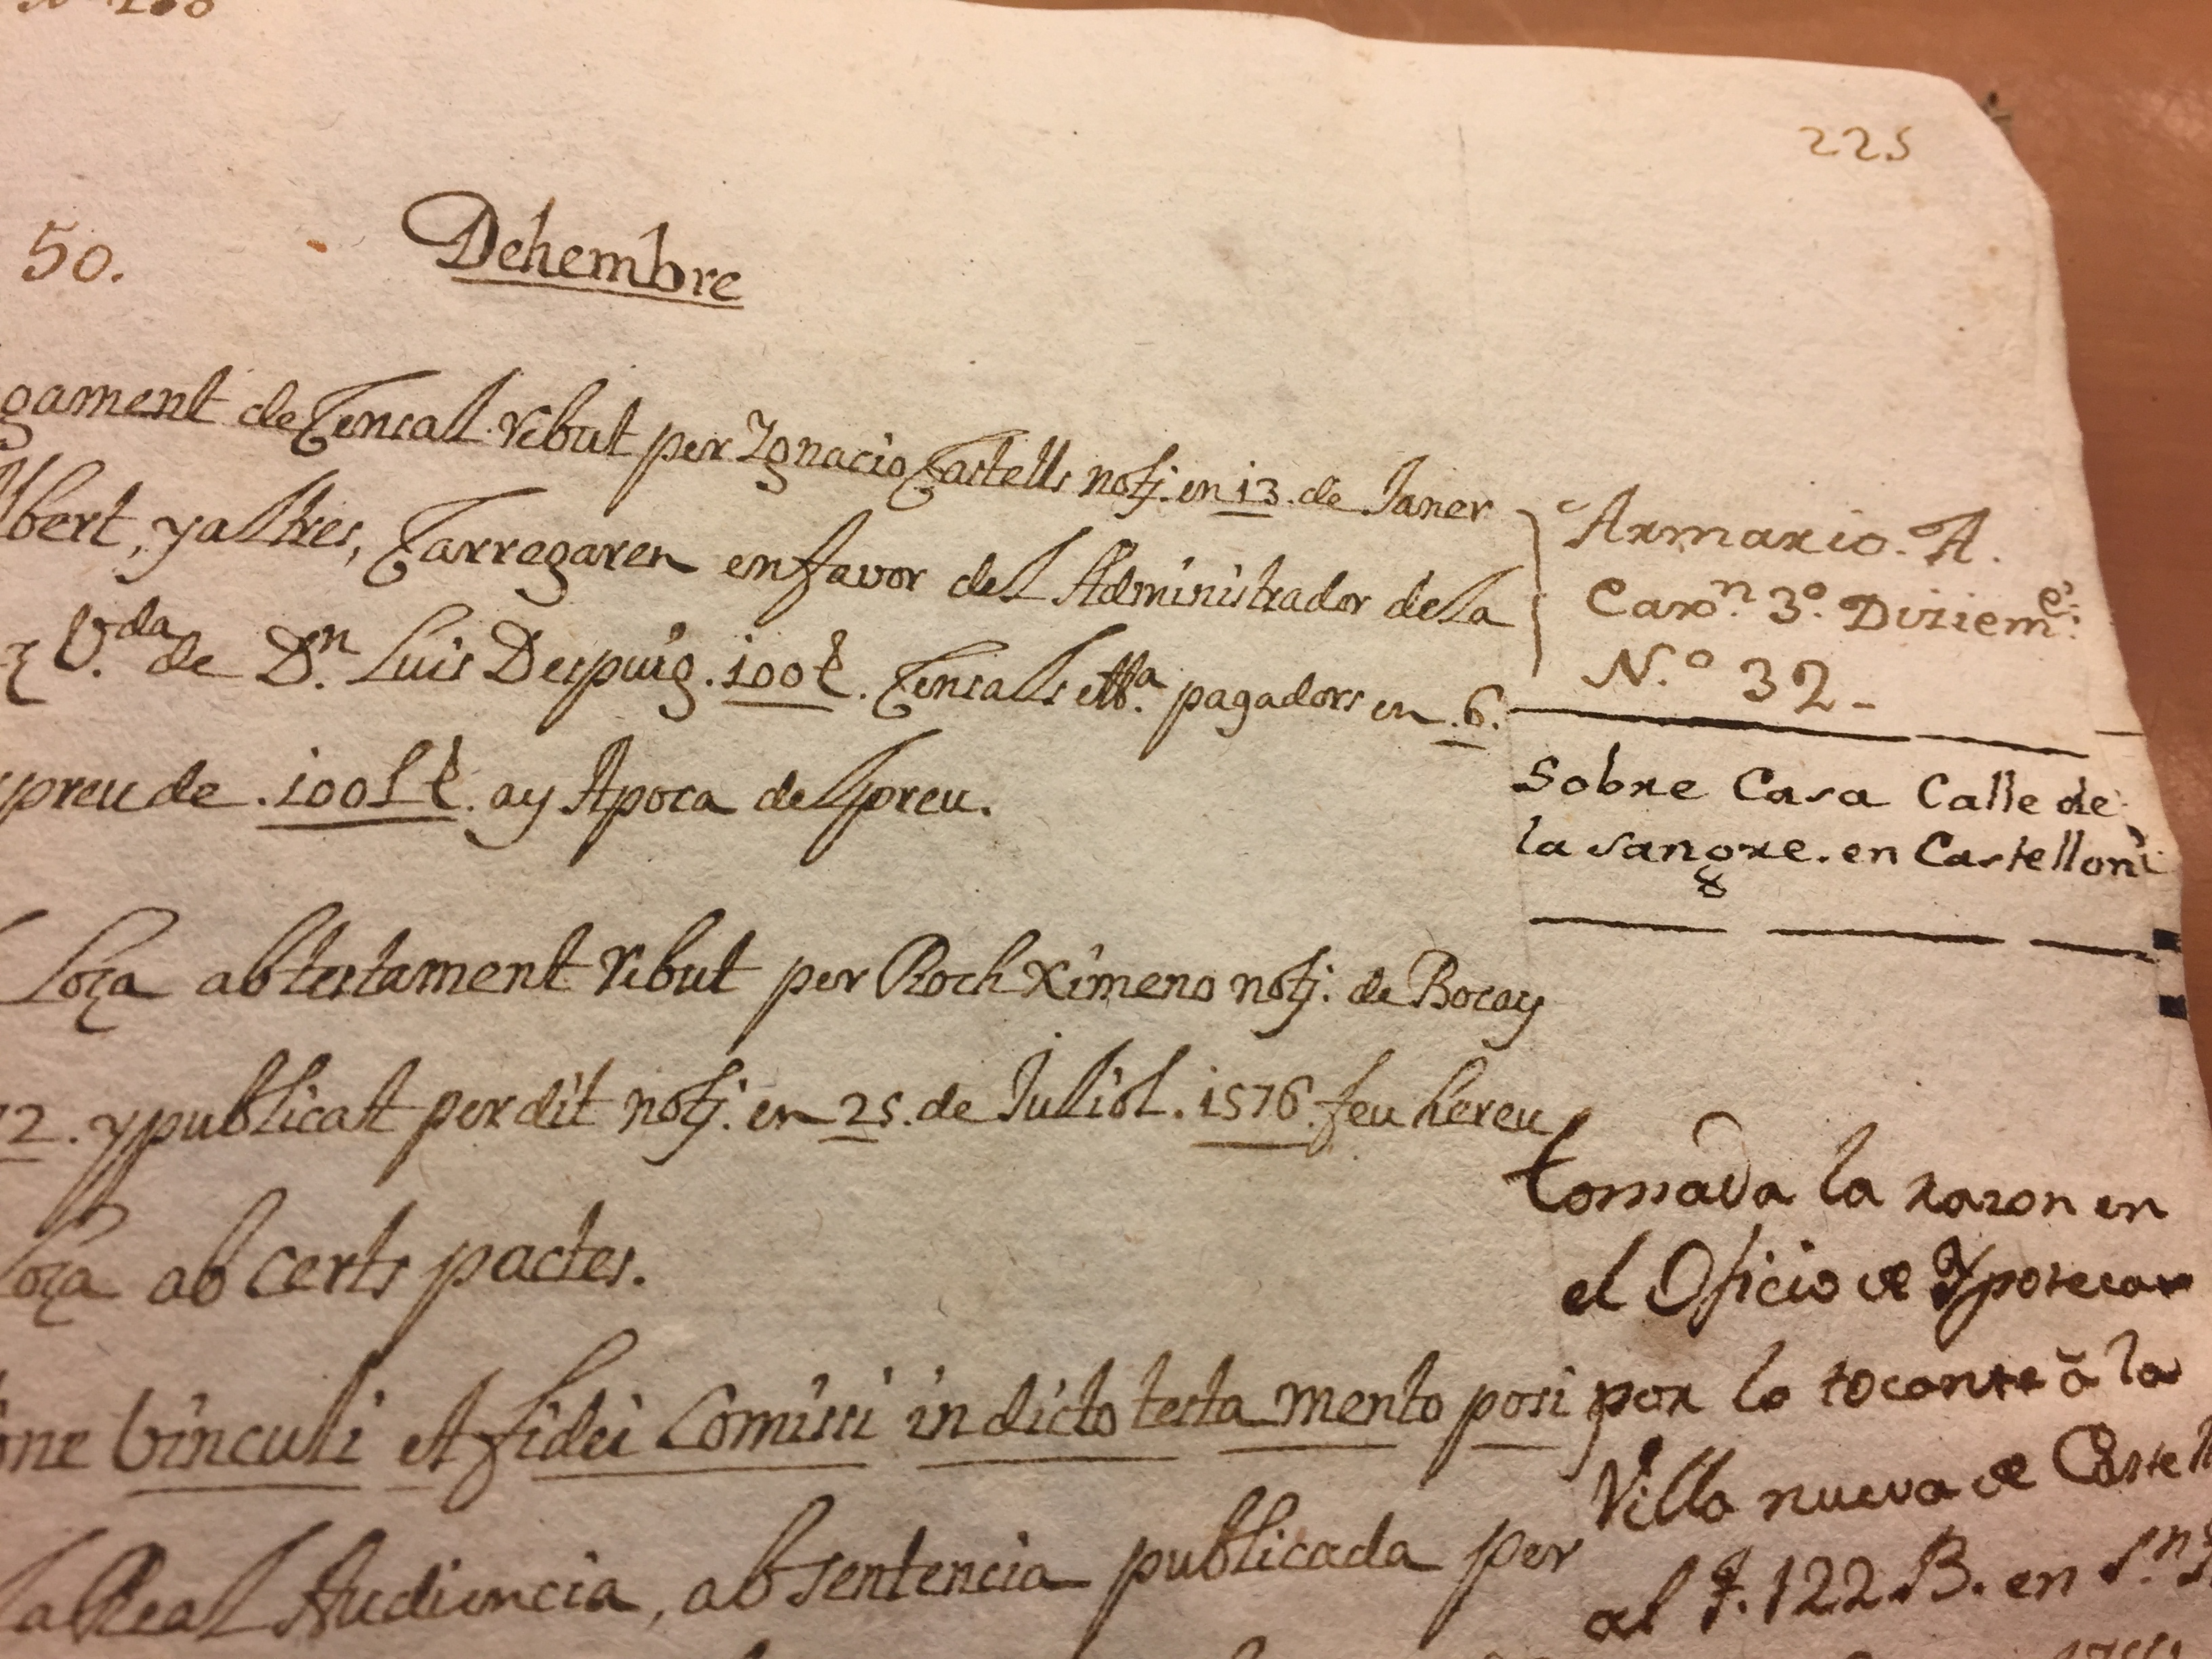 225
50.
Dehembre
gament de Censal rebut per Ignacio Castells notj. en 13. de Janer
lbert, y altres, Carregaren en favor del Administrador de la
V.da de D.n Luis Despuig. 100 ₤. Censals ettª. pagadors en .6.
preu de .100 S ₤. ay Apoca del preu.
Armario. A.
Caxo.n 3.º Diziem.e
N.º 32-
Sobre Casa Calle de
la sangre. en Castellon
Loza ab testament rebut per Roch Ximeno notj. de Bocay
72. y publicat per dit notj. en 25. de Juliol. 1576. feu hereu
Loza ab certs pactes.
one vinculi et fidei Comissi in dicto testamento posi
la Real Audiencia, ab sentencia publicada per
tomada la razon en
el Oficio de Ypotecas
por lo tocante à la
Villa nueva de Castell
al f. 122 B. en S.n